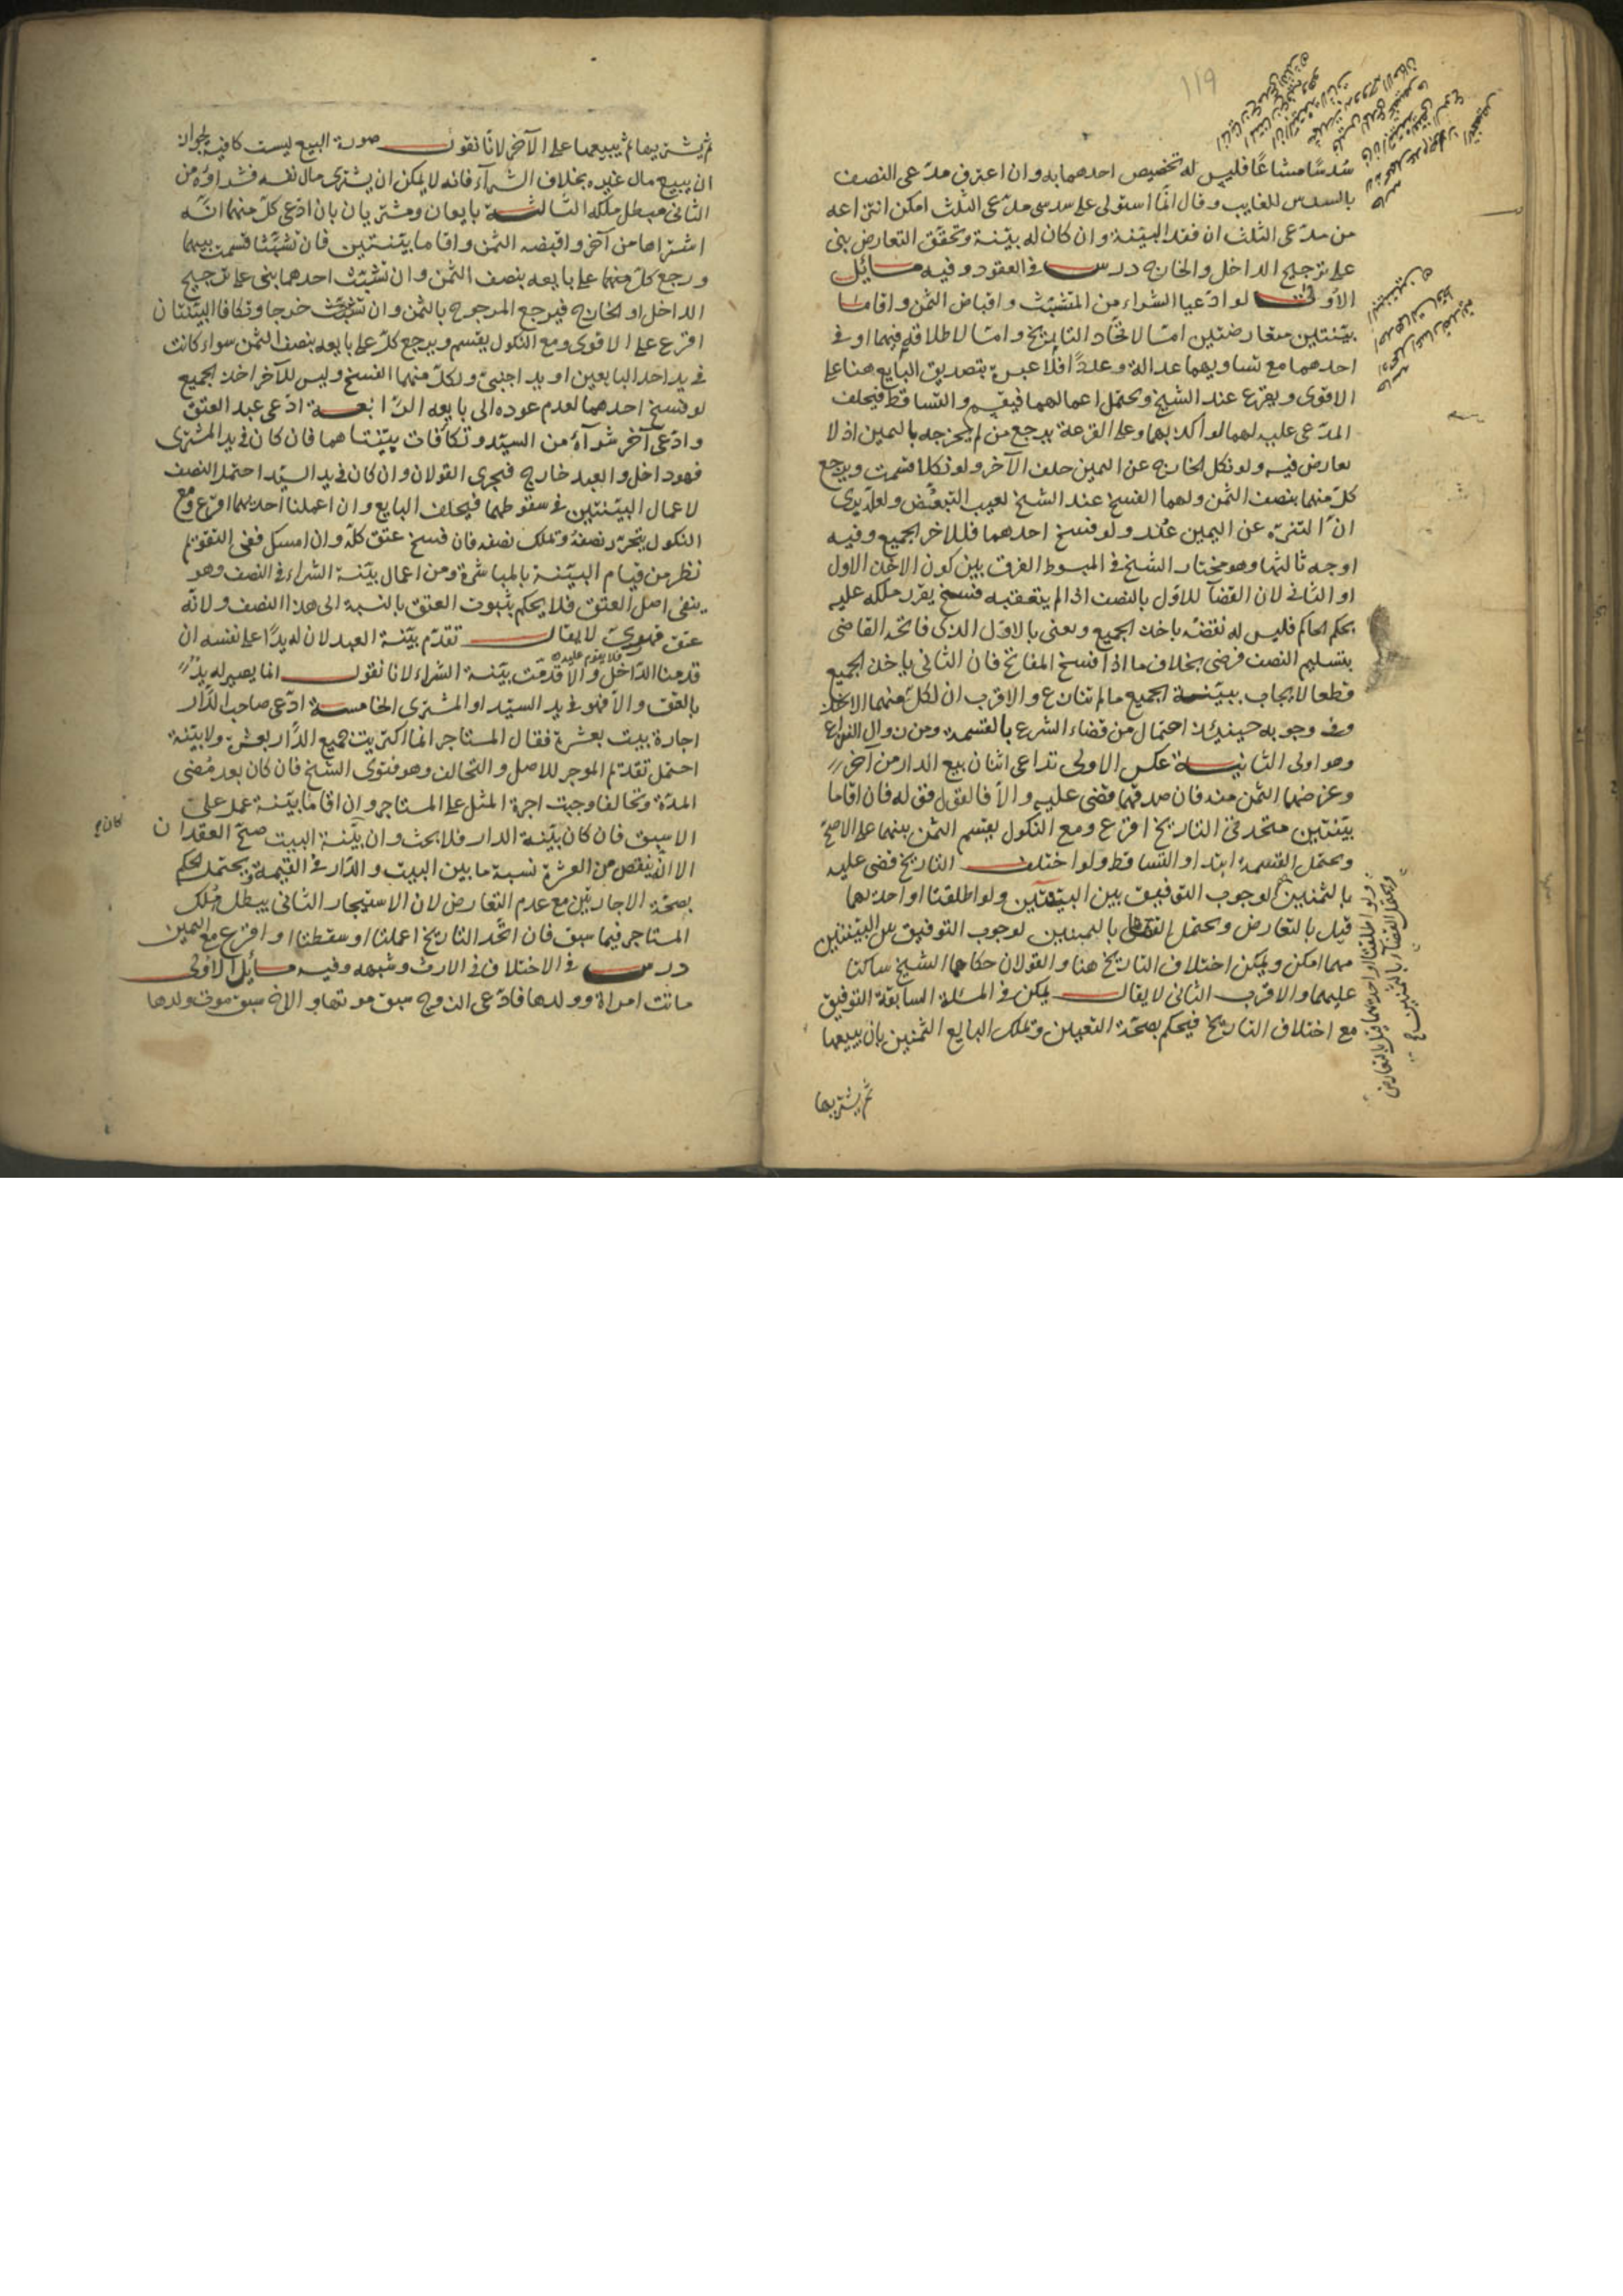 ١١٩
سدسا مشاعا فليس له تخصيص احدهما به وان اعترف مدعى النصف
بالسدس للغايب وقال انما استولى على سدسى مدعى الثلث امكن انتزاعه
من مدعى الثلث ان فقد البينة وان كان له بينة وتحقق التعارض بنى
على ترجيح الداخل والخارج درس فى العقود وفيه مسائل
الاولى لو ادعيا الشراء من المتشبث واقباض الثمن واقاما
بينتين متعارضتين امّا لاتحاد التاريخ وامّا لاطلاقه فيهما او فى
احدهما مع تساويهما عدالة وعددا فلا عبرة بتصديق البايع هنا على
الاقوى ويقرع عند الشيخ ويحتمل اعمالهما فيقسم والتساقط فيحلف
المدعى عليه لهما لو اكذبهما وعلى القرعة يرجع من لم يخرجه باليمين اذ لا
تعارض فيه ولو نكل الخارج عن اليمين حلف الآخر ولو نكلا قسمت ويرجع
كل منهما بنصف الثمن ولهما الفسخ عند الشيخ لعيب التبعض ولعله يرى
ان التنزه عن اليمين عذر ولو فسخ احدهما فللاخر الجميع وفيه
اوجه ثالثها وهو مختار الشيخ فى المبسوط الفرق بين كون الاخذ الاول
او الثانى لان القضآ للاول بالنصف اذا لم يتعقبه فسخ يقرر ملكه عليه
بحكم الحاكم فليس له نقضه باخذ الجميع ويعنى بالاول الذى فاتحه القاضى
بتسليم النصف فرضى بخلاف ما اذا فسخ المفاتح فان الثانى ياخذ الجميع
قطعا لايجاب ببينة الجميع ما لم تنازع والاقرب ان لكل منهما الاخذ
وفى وجوبه حينئذ احتمال من قضاء الشرع بالقسمة ومن زوال النزاع
وهو اولى الثانية عكس الاولى تداعى اثنان بيع الدار من آخر
وغرضهما الثمن منه فان صدقهما قضى عليه والا فالقول قوله فان اقاما
بينتين متحدتى التاريخ اقرع ومع النكول يقسم الثمن بينهما على الاصح
ويحتمل القسمة ابتداء او التساقط ولو اختلف التاريخ قضى عليه
بالثمنين لوجوب التوفيق بين البينتين ولو اطلقتا او احدىهما
قيل بالتعارض ويحتمل القضاء بالثمنين لوجوب التوفيق بين البينتين
مهما امكن ويمكن اختلاف التاريخ هنا والقولان حكاهما الشيخ ساكتا
عليهما والاقرب الثانى لا يقال يمكن فى المسئلة السابقة التوفيق
مع اختلاف التاريخ فيحكم بصحة التعيين وتملك البايع الثمنين بان يبيعها
ثم يشتريها
ولو اطلقتا او احدىهما قيل بالتعارض
ويحتمل القضآ بالثمنين
ثم يشتريها ثم يبيعها على الآخر لانا نقول صورة البيع ليست كافية لجواز
ان يبيع مال غيره بخلاف الشرآء فانه لا يمكن ان يشترى مال نفسه فشراؤه من
الثانى مبطل ملكه الثالثة بايعان ومشتريان بان ادعى كل منهما انه
اشتراها من آخر واقبضه الثمن واقاما بينتين فان تشبثا قسمت بينهما
ورجع كل منهما على بايعه بنصف الثمن وان تشبث احدهما بنى على ترجيح
الداخل او الخارج فيرجع المرجوح بالثمن وان خرجا وتكافا البينتان
اقرع على الاقوى ومع النكول يقسم ويرجع كل على بايعه بنصف الثمن سواء كانت
فى يد احد البايعين او يد اجنبى ولكل منهما الفسخ وليس للآخر اخذ الجميع
لو فسخ احدهما لعدم عوده الى بايعه الرابعة ادعى عبد العتق
وادعى آخر شرآءه من السيد وتكافات بينتاهما فان كان فى يد المشترى
فهو داخل والعبد خارج فيجرى القولان وان كان فى يد السيد احتمل النصف
لاعمال البينتين فى سقوطهما فيحلف البايع وان اعملنا احدىهما اقرع ومع
النكول يتحرر نصفه وتملك نصفه فان فسخ عتق كله وان امسك ففى التقويم
نظر من قيام البينة بالمباشرة ومن اعمال بينة الشراء فى النصف وهو
ينفى اصل العتق فلا يحكم بثبوت العتق بالنسبة الى هذا النصف ولانه
عتق قهرى لا يقال تقدم بينة العبد لان له يدا على نفسه ان
فلا يقوم عليه
قدمنا الداخل والا قدمت بينة الشراء لانا نقول انما يصير له يد
بالعتق والا فهو فى يد السيد او المشترى الخامسة ادعى صاحب الدار
اجارة بيت بعشرة فقال المستاجر انما اكتريت جميع الدار بعشرة ولا بينة
احتمل تقديم الموجر للاصل والتحالف وهو فتوى الشيخ فان كان بعد مضى
المدة وتحالفا وجبت اجرة المثل على المستاجر وان اقاما بينة عمل على
الاسبق فان كان بينة الدار فلا بحث وان بينة البيت صح العقدان
كان
الا انه ينقص من العشرة نسبة ما بين البيت والدار فى القيمة ويحتمل الحكم
بصحة الاجارتين مع عدم التعارض لان الاستيجار الثانى يبطل ملك
المستاجر فيما سبق فان اتحد التاريخ اعملتا او سقطتا او اقرع مع اليمين
درس فى الاختلاف فى الارث وشبهه وفيه مسائل الاولى
ماتت امراة وولدها فادعى الزوج سبق موتها والاخ سبق موت ولدها